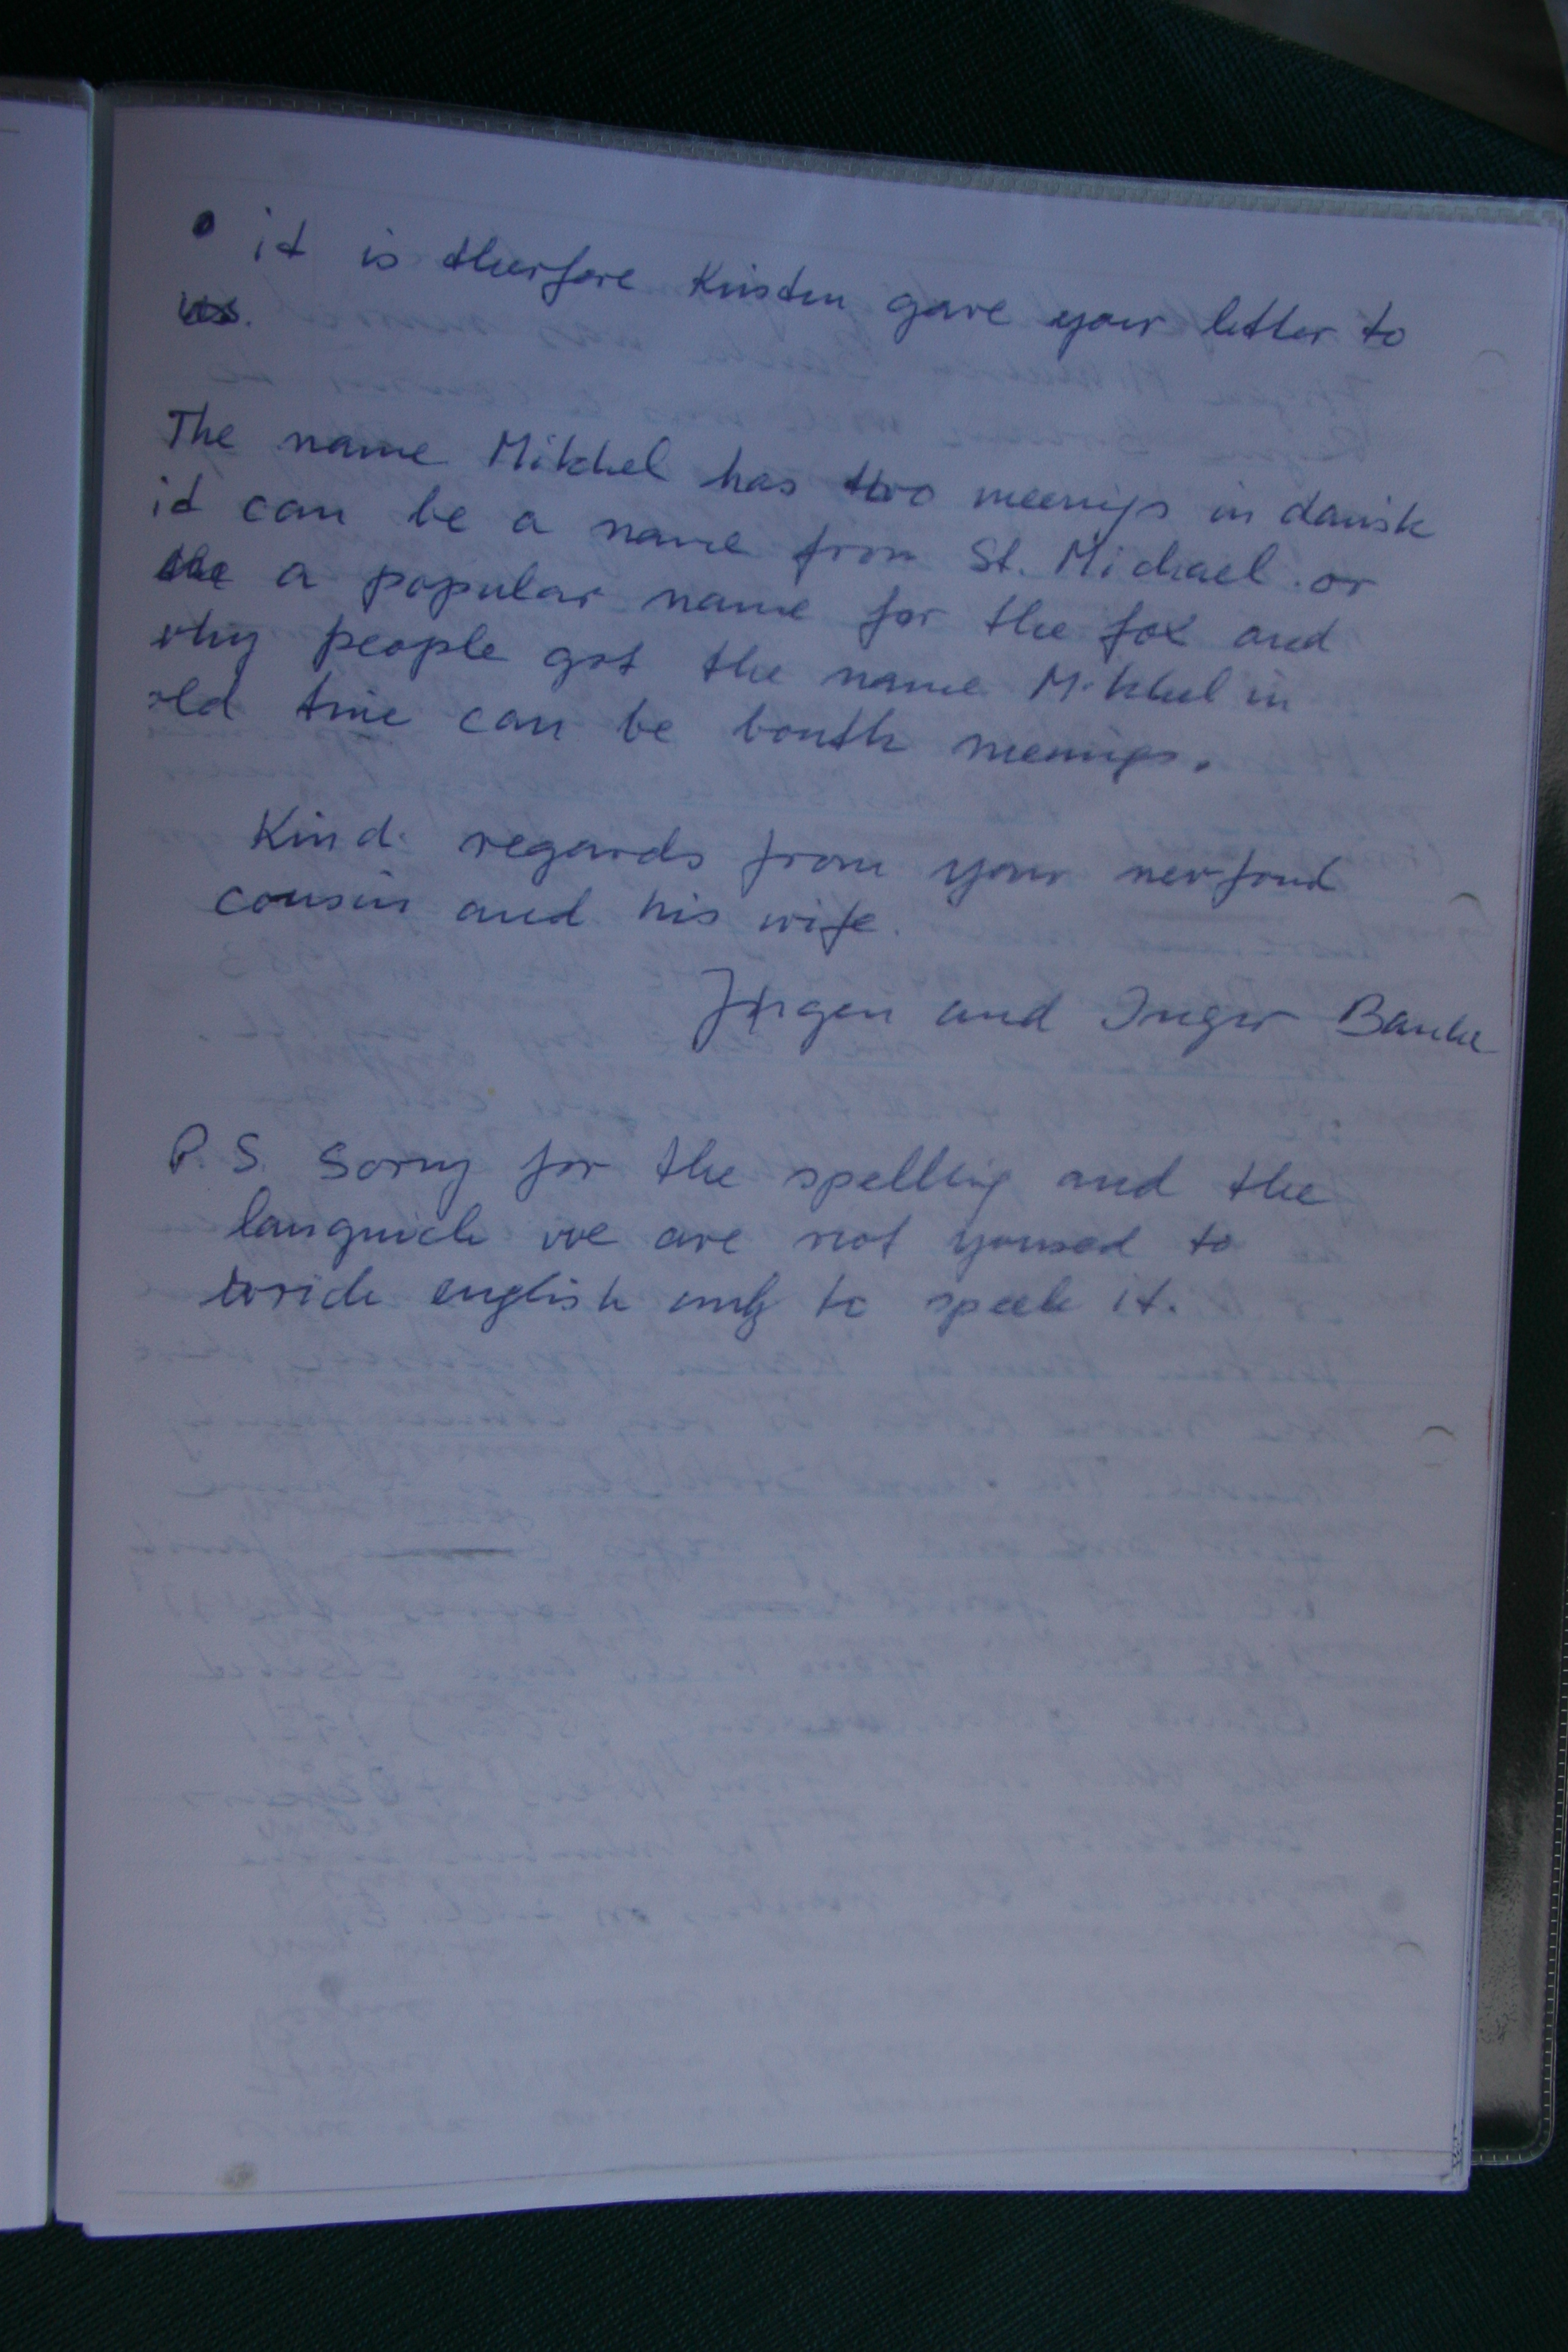 it is therfore Kirsten gave your letter to
us.
The name Mikkel has two meenigs in dansk
id can be a name from St. Michael or
a popular name for the fox and
why people got the name Mikkel in
old time can be bouth meenigs.
Kind regards from your newfond
cousin and his wife.
Jørgen and Inger Banke
P.S. Sorry for the spelling and the
languich we are not yoused to
wride english only to speek it.